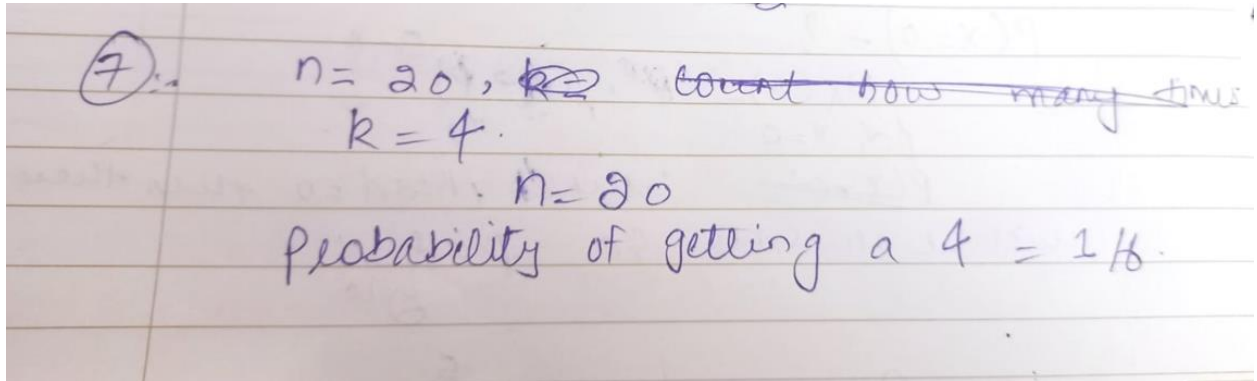 7:- n = 20, k= count how many times
k = 4.
n = 20
Probability of getting a 4 = 1/6.